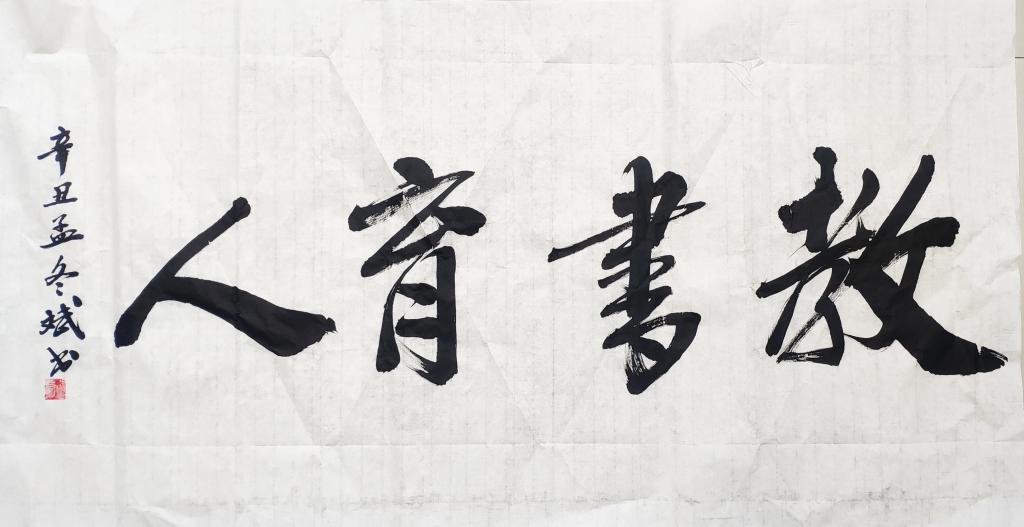 教書育人
辛丑孟冬斌书